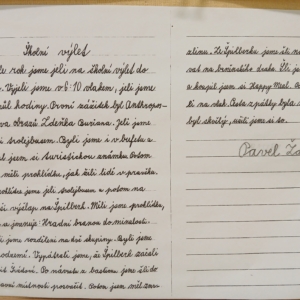 Školní výlet
rok jsme jeli na školní výlet do
Vyjeli jsme v 8:10 vlakem, jeli jsme
půl hodiny. První zážitek byl Anthropos
obrazů Zdeňka Buriana. Jeli jsme
trolejbusem. Byli jsme i v bufetu a
jsem si turistickou známku. Potom
měli prohlídku, jak žili lidé v pravěku.
prohlídce jsme jeli trolejbusem a potom na
výšlap na Špilberk. Měli jsme prohlídku,
se jmenuje: Hradní branou do minulosti.
jsme rozděleni na dvě skupiny. Byli jsme
Vypátrali jsme, že Špilberk založil
Po návratu z bastionu jsme šli do
místnosti porovnat. Potom jsem měl
alinu. Ze Špilberku jsme šli
vat na brněnského draka. Šli jsme
a koupil jsem si Happy Meal.
li na vlak. Cesta zpátky byla
byl skvělý, užil jsem si to.
Pavel